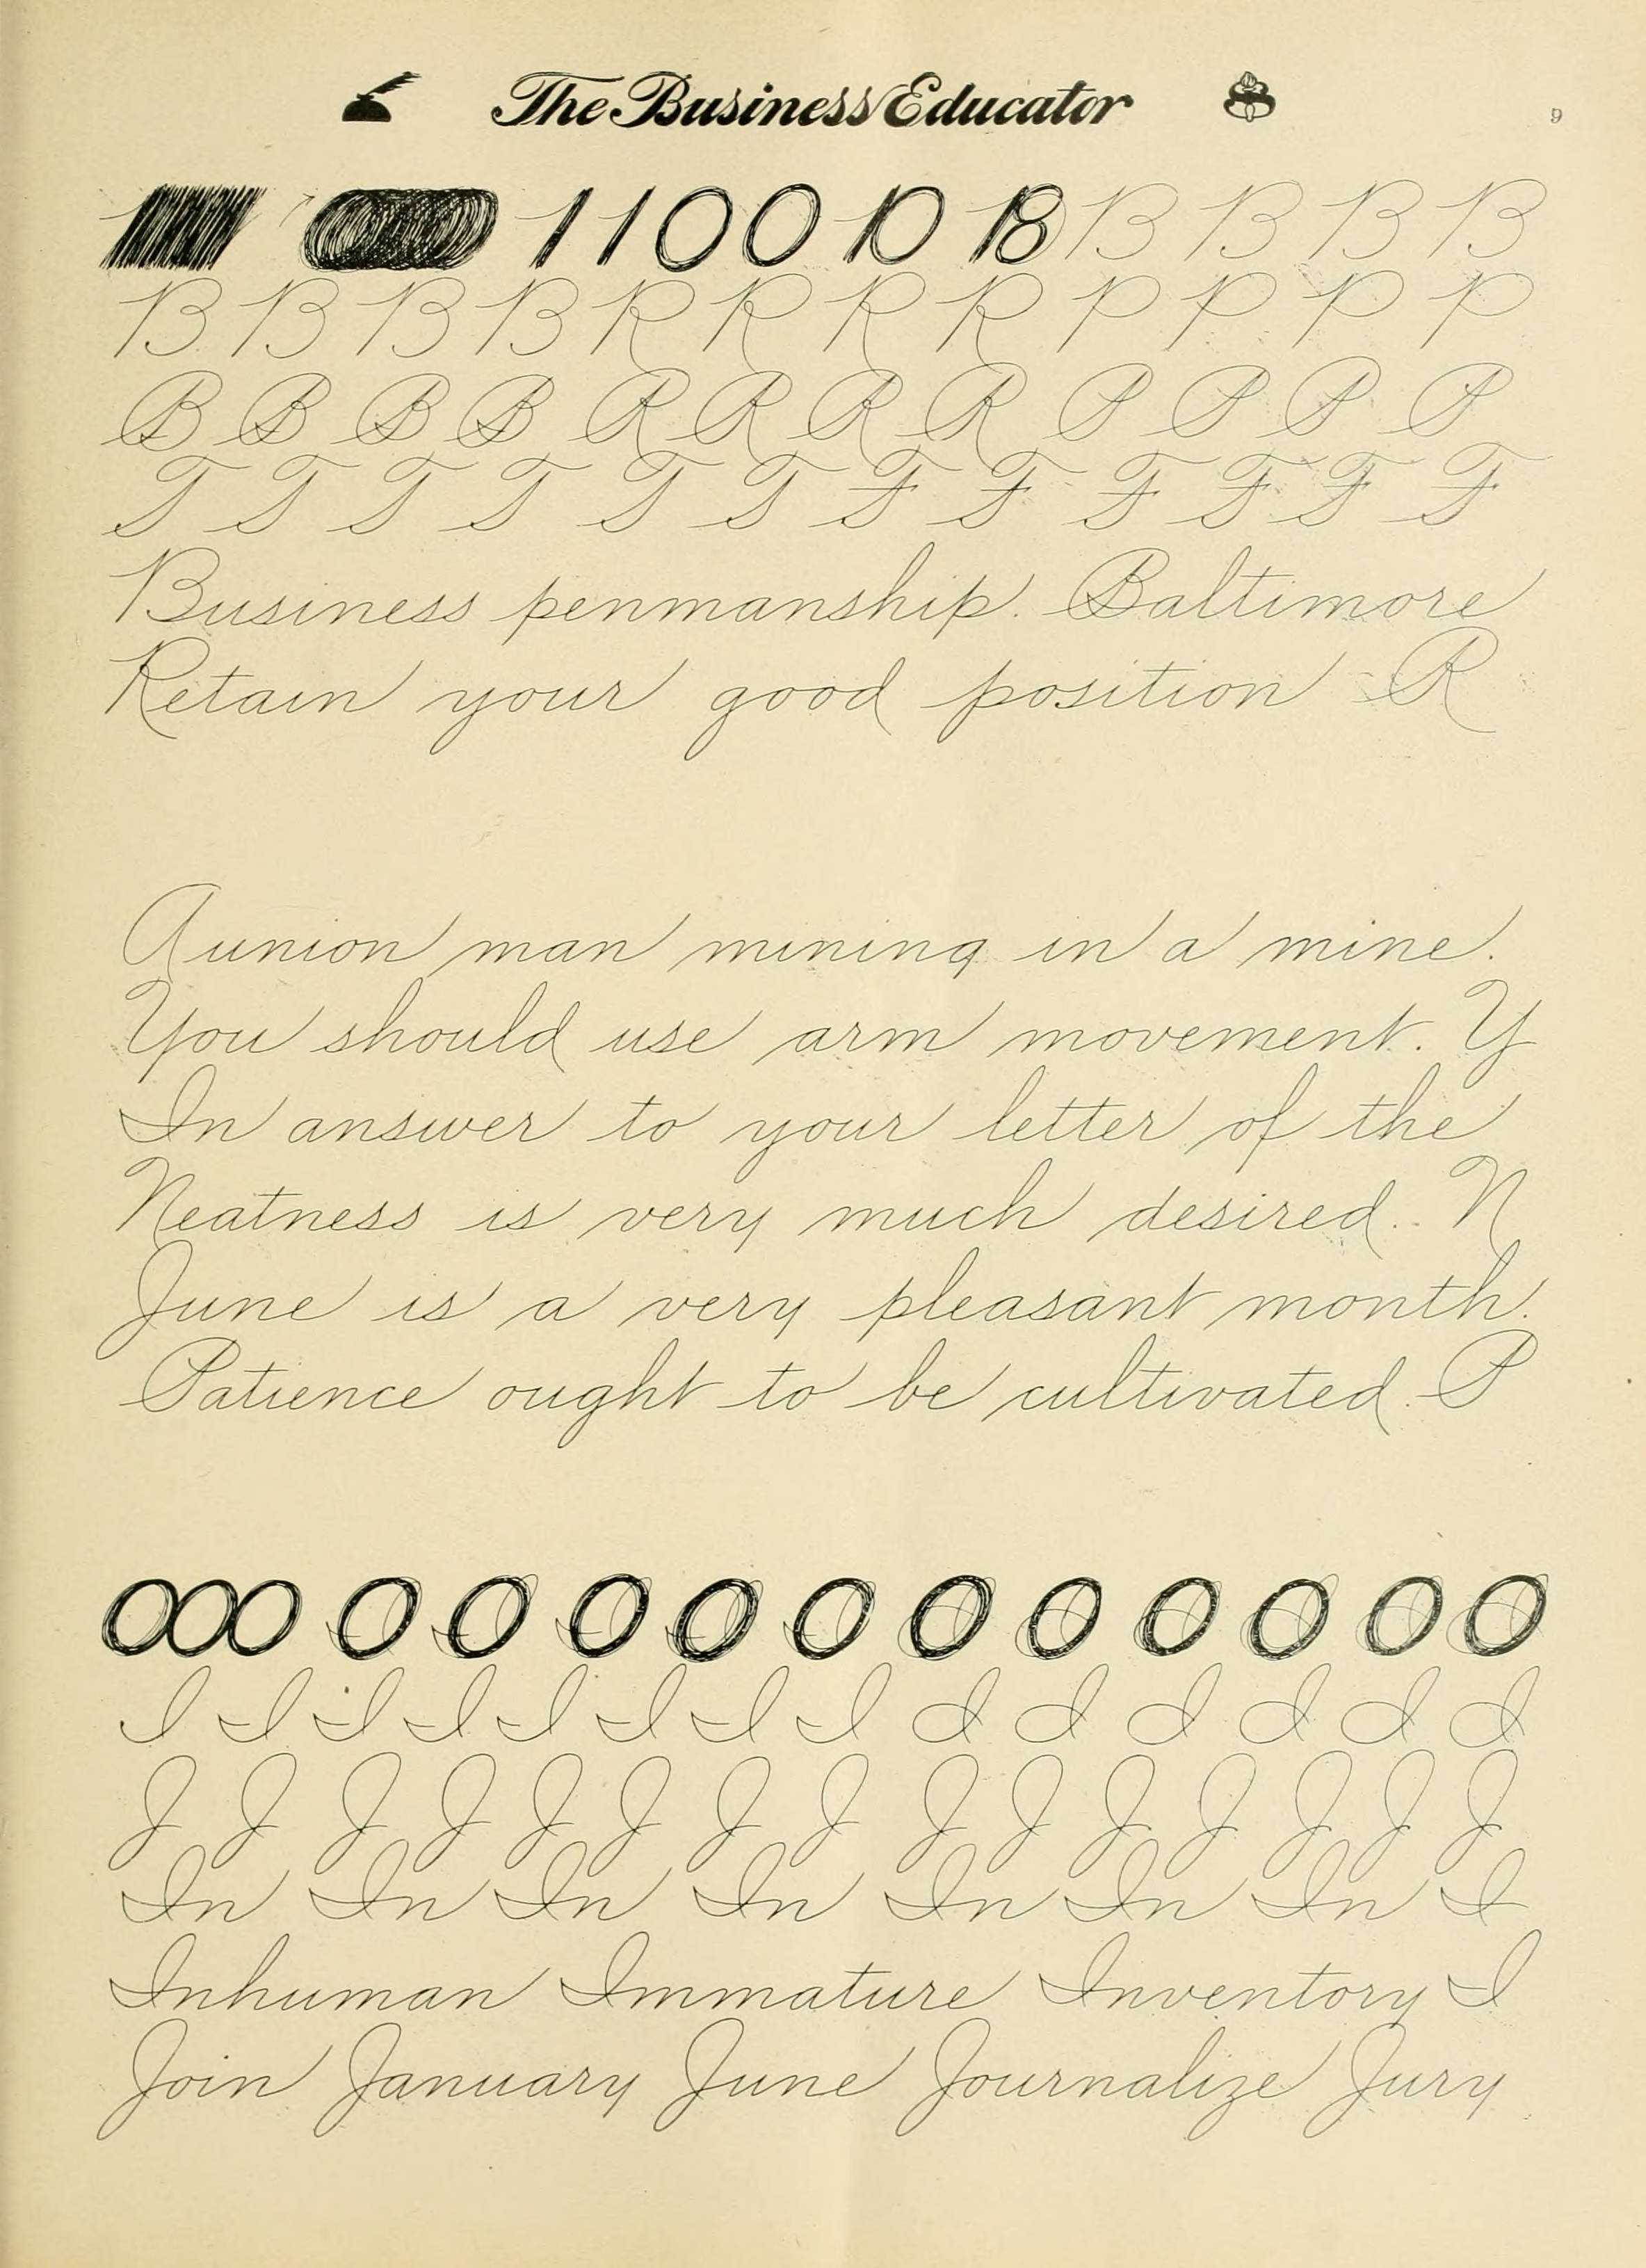 The Business Educator
9
1 1 0 0 10 18 B B B B
B B B B R R R R P P P P
B B B B R R R R P P P P
T T T T T T F F F F F F
Business penmanship. Baltimore
Retain your good position R
A union man mining in a mine.
You should use arm movement. Y
In answer to your letter of the
Neatness is very much desired. N
June is a very pleasant month.
Patience ought to be cultivated. P
O O O O O O O O O O O O O O
I I I I I I I I I I I I I I
J J J J J J J J J J J J J J J
In In In In In In In I
Inhuman Immature Inventory I
Join January June Journalize Jury